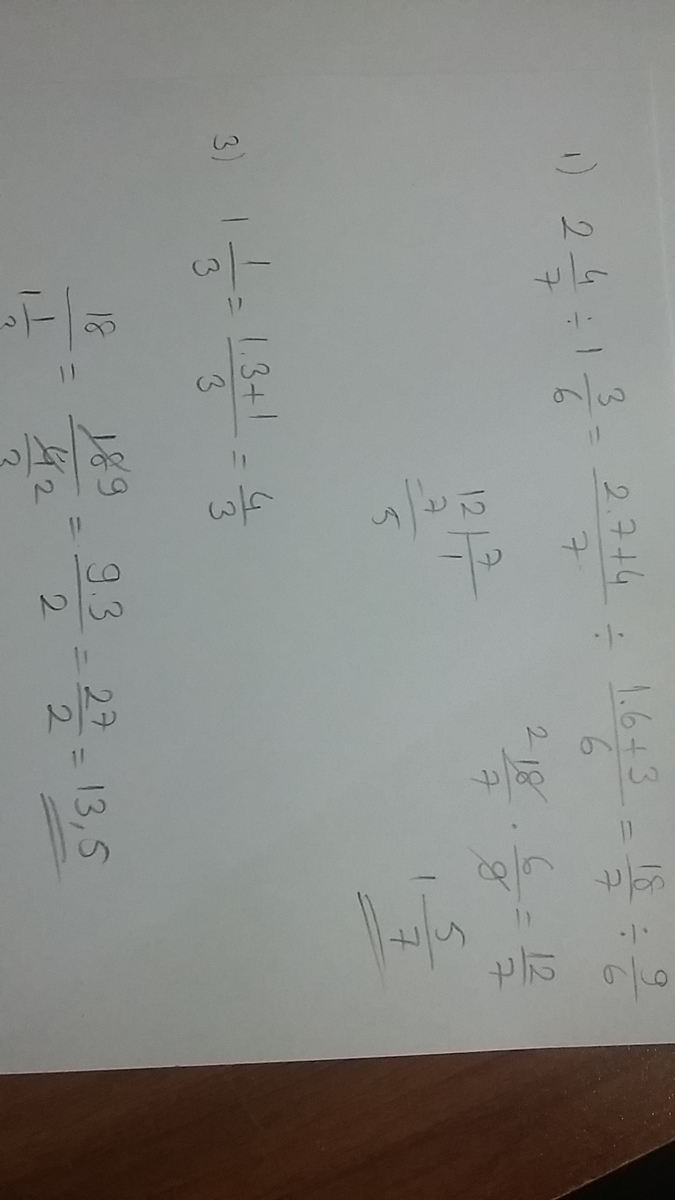 1) 2 4/7 ÷ 1 3/6 = 2.7+4/7 ÷ 1.6+3/6 = 18/7 ÷ 9/6
2 18/7 · 6/9 = 12/7
12 | 7
-7 | 1
5
1 5/7
3) 1 1/3 = 1.3+1/3 = 4/3
18/1 1/3 = 18 9/4 2/3 = 9.3/2 = 27/2 = 13,5